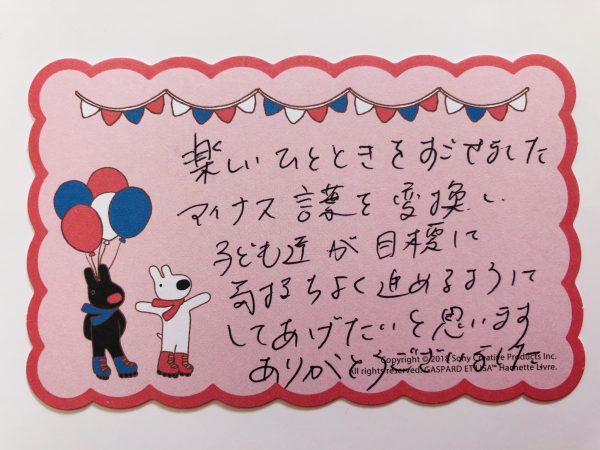 楽しいひとときをすごせました
マイナス言葉を変換し
子ども達が目標に
向するちよく進めるように
してあげたいと思います
ありがとうございました
Copyright © 2018 Sony Creative Products Inc.
All rights reserved. GASPARD ET LISA™ Hachette Livre.